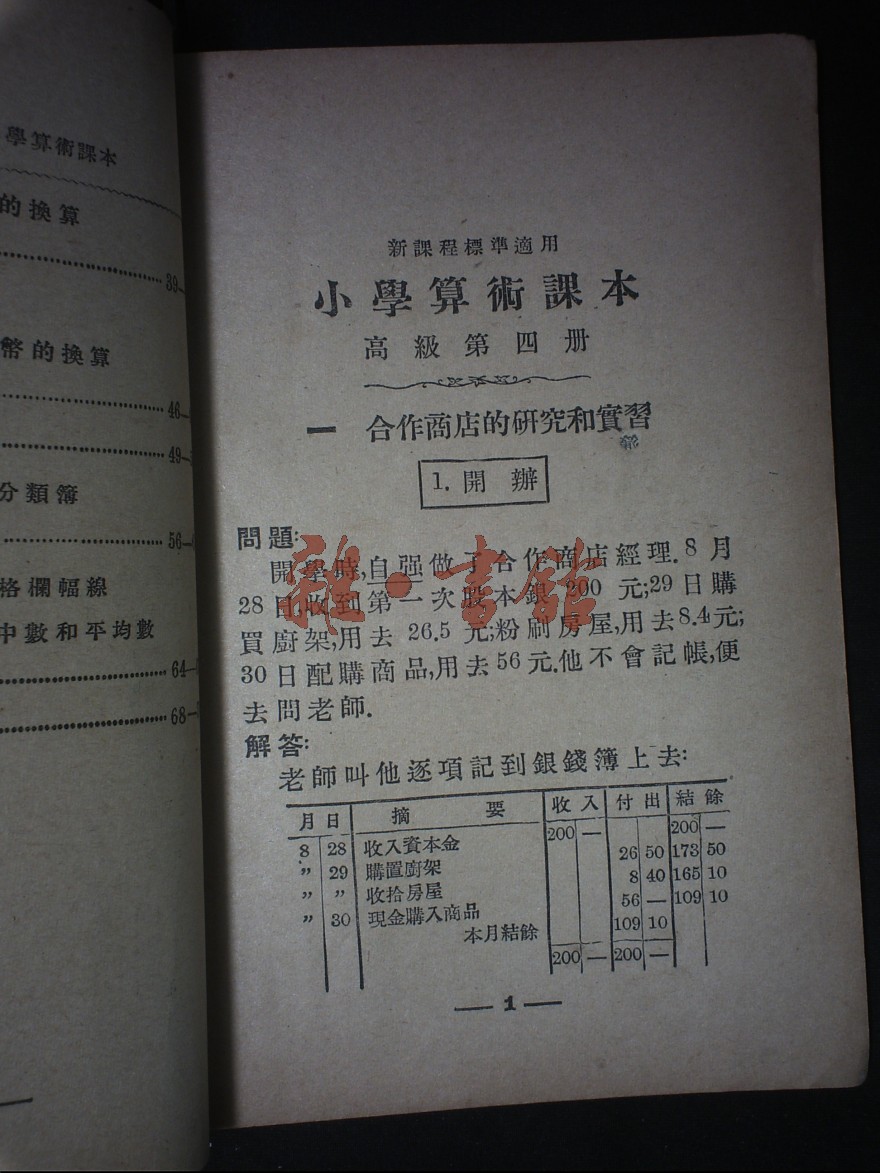 學算術課本
的換算
39
幣的換算
46
49
分類簿
56
格欄幅線
中數和平均數
64
68
新課程標準適用
小學算術課本
高級第四册
一 合作商店的研究和實習
1. 開辦
問題:
開學時,自强做了合作商店經理.8月
28日收到第一次股本銀 200 元;29日購
買廚架,用去 26.5 元;粉刷房屋,用去8.4元;
30日配購商品,用去56元.他不會記帳,便
去問老師.
解答:
老師叫他逐項記到銀錢簿上去:
月 日 摘要 收入 付出 結餘
8 28 收入資本金 200 — 200 —
〃 29 購置廚架 26 50 173 50
〃 〃 收拾房屋 8 40 165 10
〃 30 現金購入商品 56 — 109 10
本月結餘 109 10
200 — 200 —
— 1 —
雜·書館